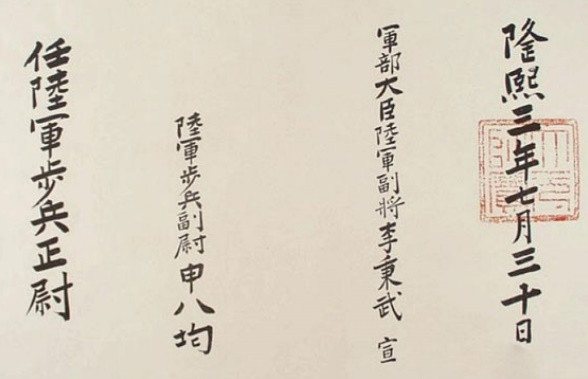 隆熙三年七月三十日
軍部大臣陸軍副將李秉武 宣
陸軍步兵副尉申八均
任陸軍步兵正尉